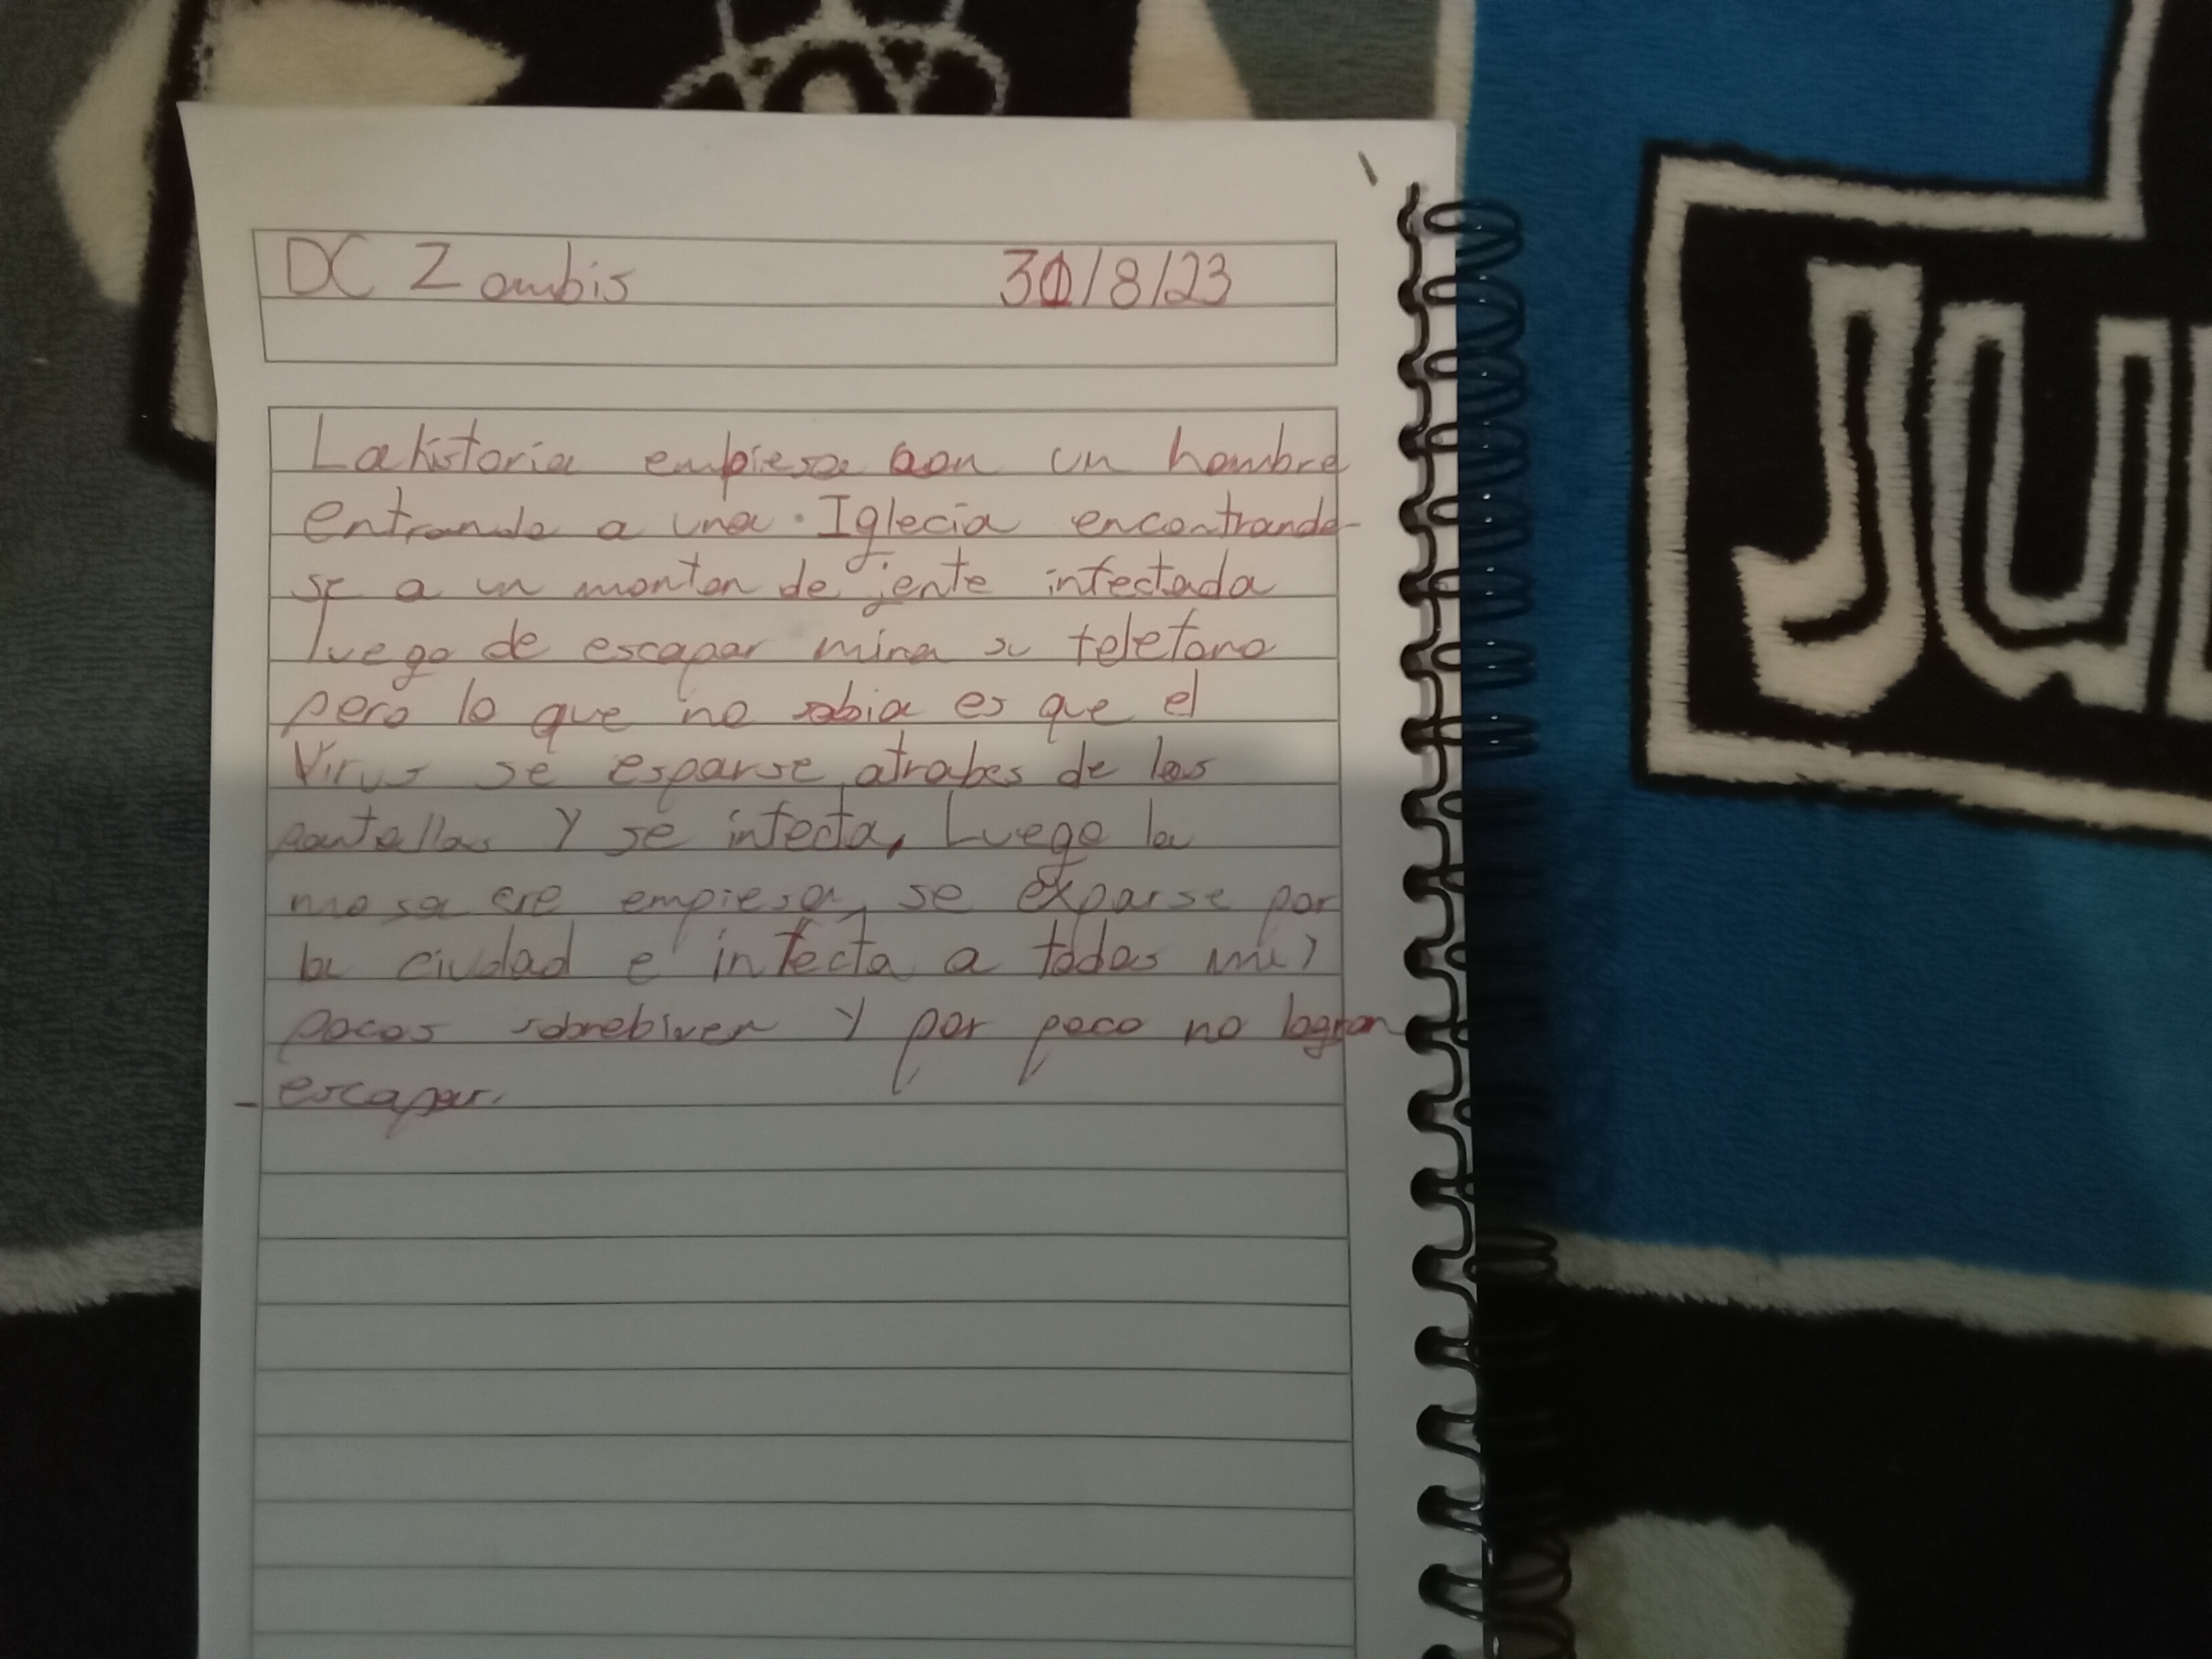 DC Zombis 31/8/23
La historia empiesa con un hombre
entrando a una Iglecia encontrando-
se a un monton de jente infectada
luego de escapar mira su telefono
pero lo que no sabia es que el
Virus se esparse atrabes de las
pantallas Y se infecta, Luego la
masa cre empiesa, se exparse por
la ciudad e infecta a todos mui
pocos sobrebiven Y por poco no logran
escapar.
JU